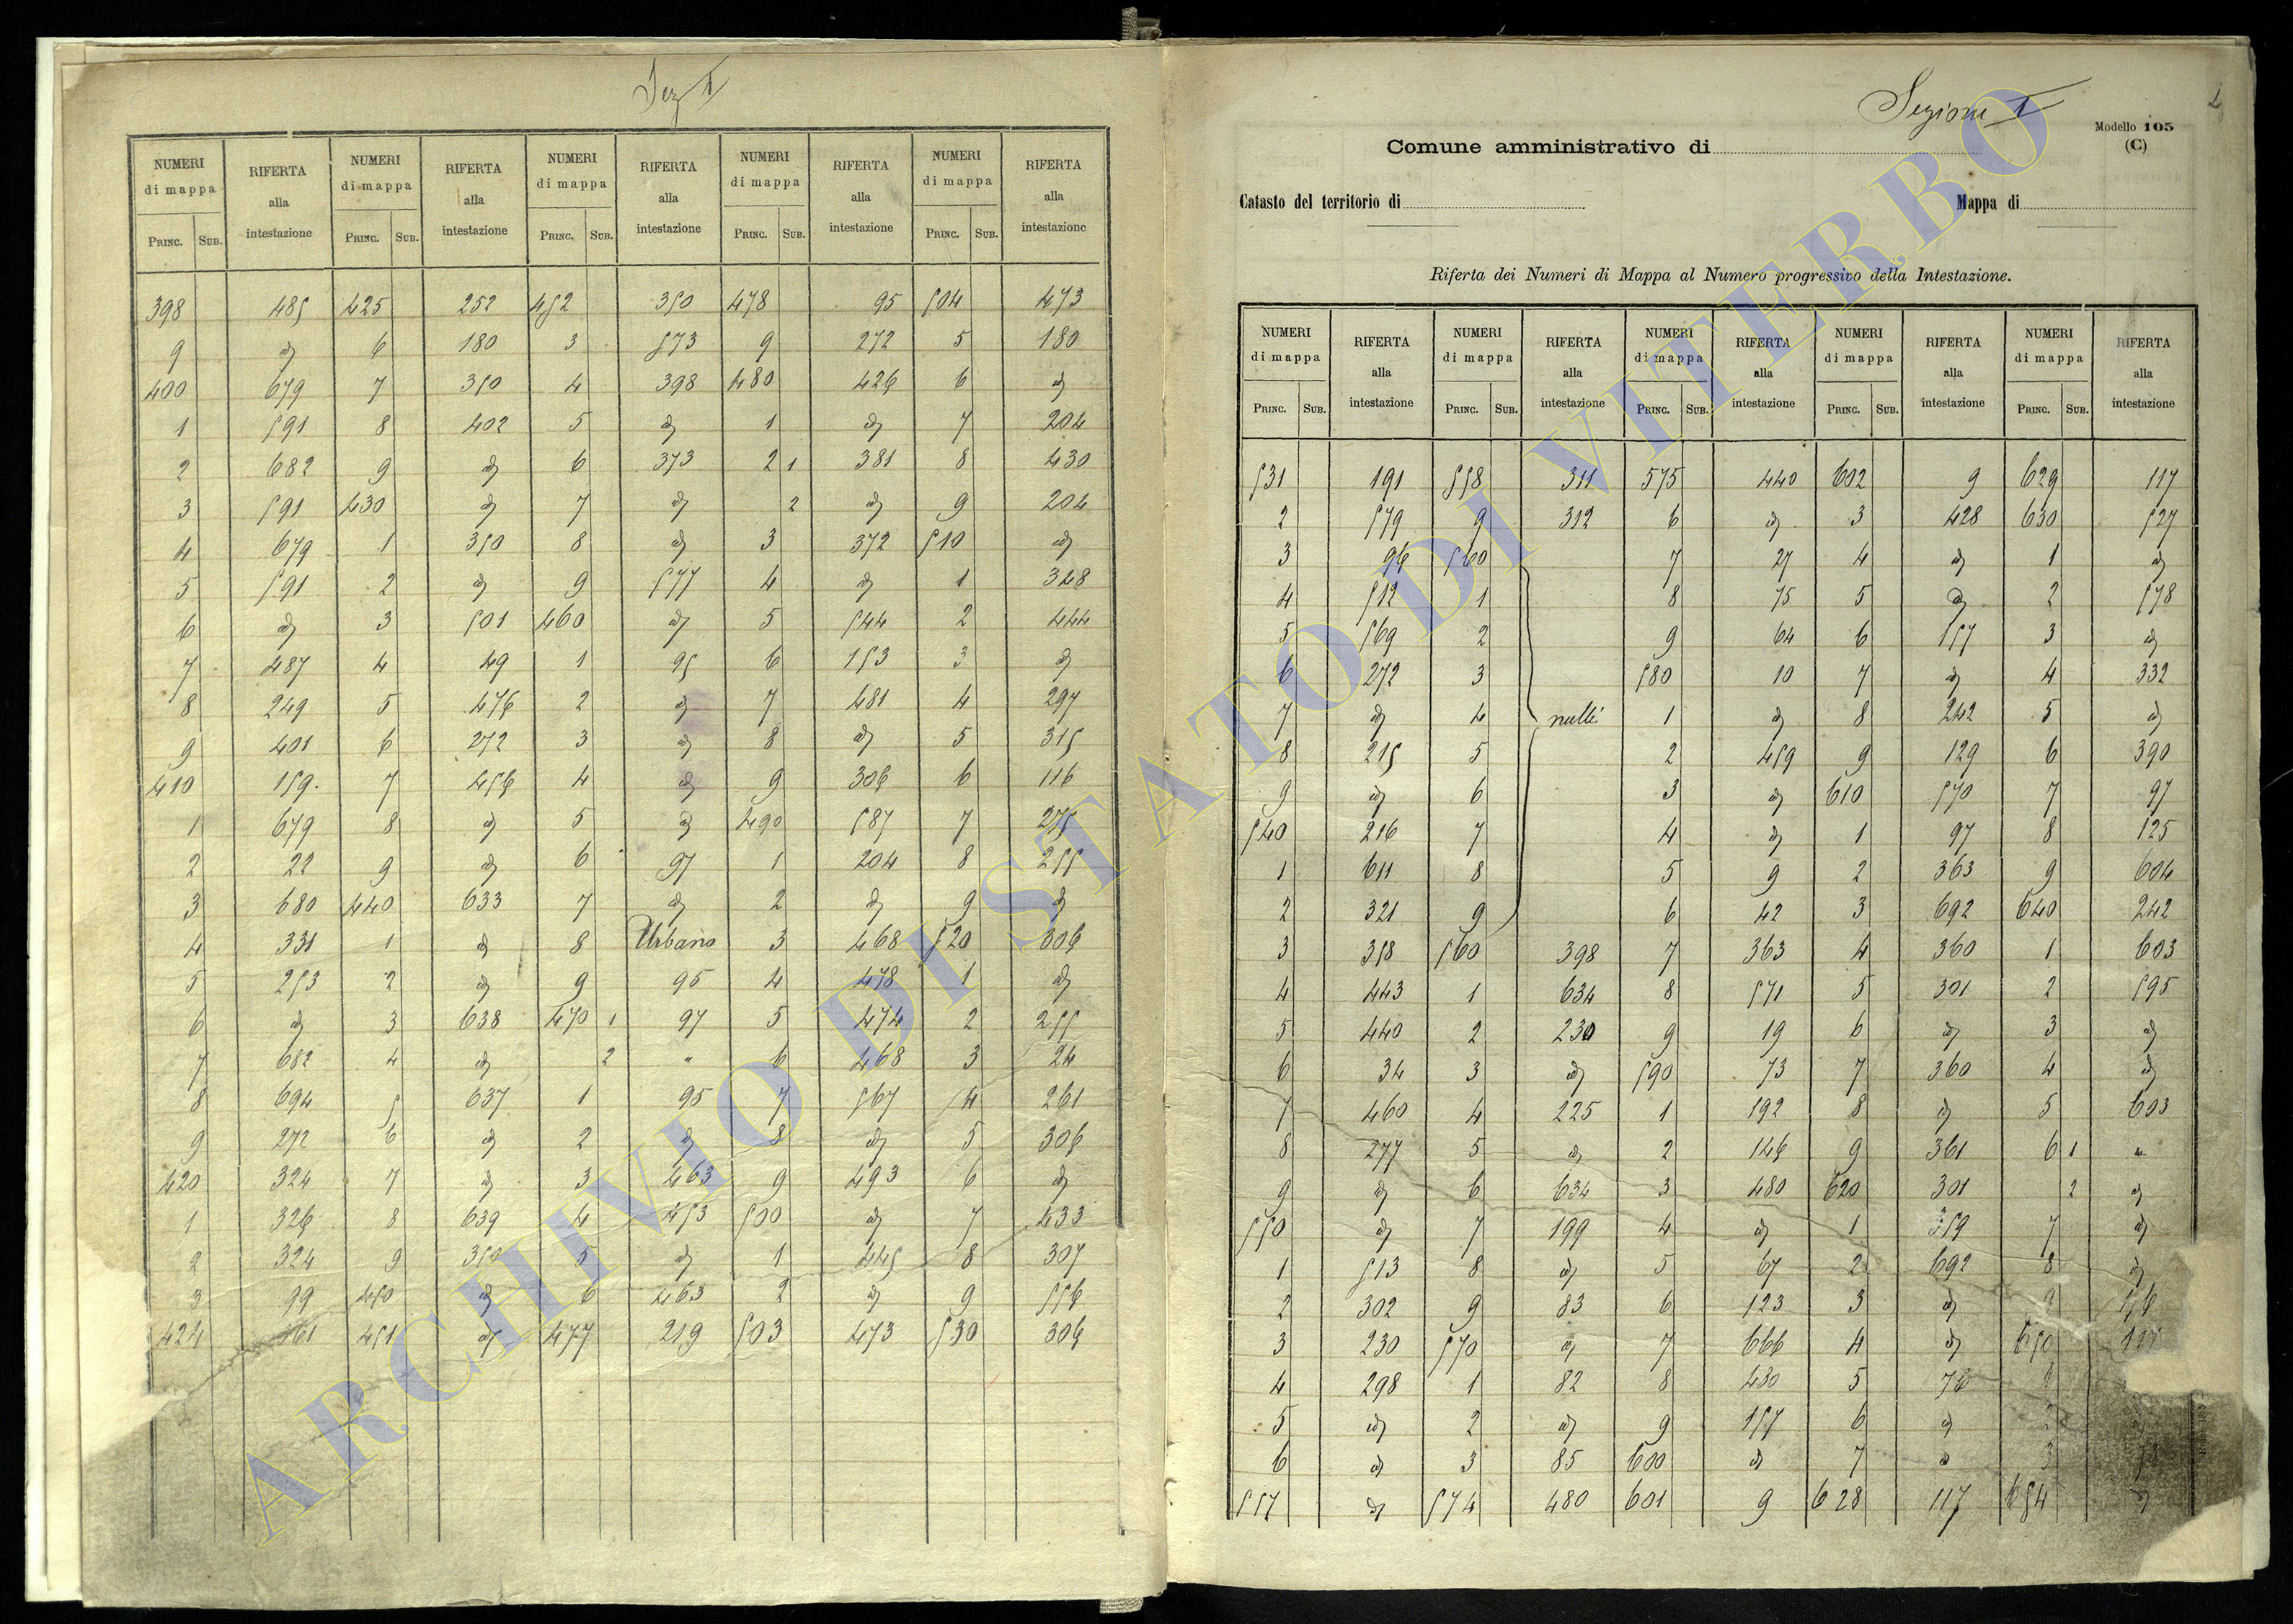 Sez I
NUMERI di mappa RIFERTA alla intestazione NUMERI di mappa RIFERTA alla intestazione NUMERI di mappa RIFERTA alla intestazione NUMERI di mappa RIFERTA alla intestazione NUMERI di mappa RIFERTA alla intestazione
PRINC. SUB. PRINC. SUB. PRINC. SUB. PRINC. SUB. PRINC. SUB.
398 485 425 252 452 350 478 95 504 473
9 id 6 180 3 573 9 272 5 180
400 679 7 350 4 398 480 426 6 id
1 591 8 402 5 id 1 id 7 204
2 682 9 id 6 373 2 1 381 8 430
3 591 430 id 7 id 2 id 9 204
4 679 1 350 8 id 3 372 510 id
5 591 2 id 9 577 4 id 1 328
6 id 3 501 460 id 5 544 2 444
7 487 4 49 1 95 6 153 3 id
8 249 5 476 2 id 7 481 4 297
9 401 6 272 3 id 8 id 5 315
410 159 7 456 4 id 9 306 6 116
1 679 8 id 5 id 490 587 7 275
2 22 9 id 6 97 1 204 8 255
3 680 440 633 7 id 2 id 9 id
4 331 1 id 8 Urbano 3 468 520 306
5 253 2 id 9 95 4 478 1 id
6 id 3 638 470 1 97 5 474 2 255
7 682 4 id 2 " 6 468 3 24
8 694 5 637 1 95 7 567 4 261
9 272 6 id 2 id 8 id 5 306
420 324 7 id 3 463 9 493 6 id
1 326 8 639 4 453 500 id 7 433
2 324 9 350 5 id 1 445 8 307
3 99 450 id 6 463 2 id 9 556
424 451 id 477 219 503 473 530 306
Sezione I
2
Modello 105
(C)
Comune amministrativo di
Catasto del territorio di Mappa di
Riferta dei Numeri di Mappa al Numero progressivo della Intestazione.
NUMERI di mappa RIFERTA alla intestazione NUMERI di mappa RIFERTA alla intestazione NUMERI di mappa RIFERTA alla intestazione NUMERI di mappa RIFERTA alla intestazione NUMERI di mappa RIFERTA alla intestazione
PRINC. SUB. PRINC. SUB. PRINC. SUB. PRINC. SUB. PRINC. SUB.
531 191 558 311 575 440 602 9 629 117
2 579 9 312 6 id 3 428 630 527
3 96 560 7 27 4 id 1 id
4 512 1 8 75 5 id 2 578
5 569 2 9 64 6 157 3 id
6 272 3 580 10 7 id 4 332
7 id 4 nulli 1 id 8 242 5 id
8 215 5 2 459 9 129 6 390
9 id 6 3 id 610 570 7 97
540 216 7 4 id 1 97 8 125
1 611 8 5 9 2 363 9 604
2 321 9 6 42 3 692 640 242
3 358 560 398 7 363 4 360 1 603
4 443 1 634 8 571 5 301 2 595
5 440 2 230 9 19 6 id 3 id
6 34 3 id 590 73 7 360 4 id
7 460 4 225 1 192 8 id 5 603
8 277 5 id 2 146 9 361 6 1 "
9 id 6 634 3 480 620 301 2 id
550 id 7 199 4 id 1 359 7 id
1 513 8 id 5 67 2 692 8 id
2 302 9 83 6 123 3 id 9
3 230 570 id 7 666 4 id 650
4 298 1 82 8 430 5
5 id 2 id 9 157 6 id 2
6 id 3 85 600 id 7 id 3
557 id 574 480 601 9 628 117 654 id
ARCHIVIO DI STATO DI VITERBO